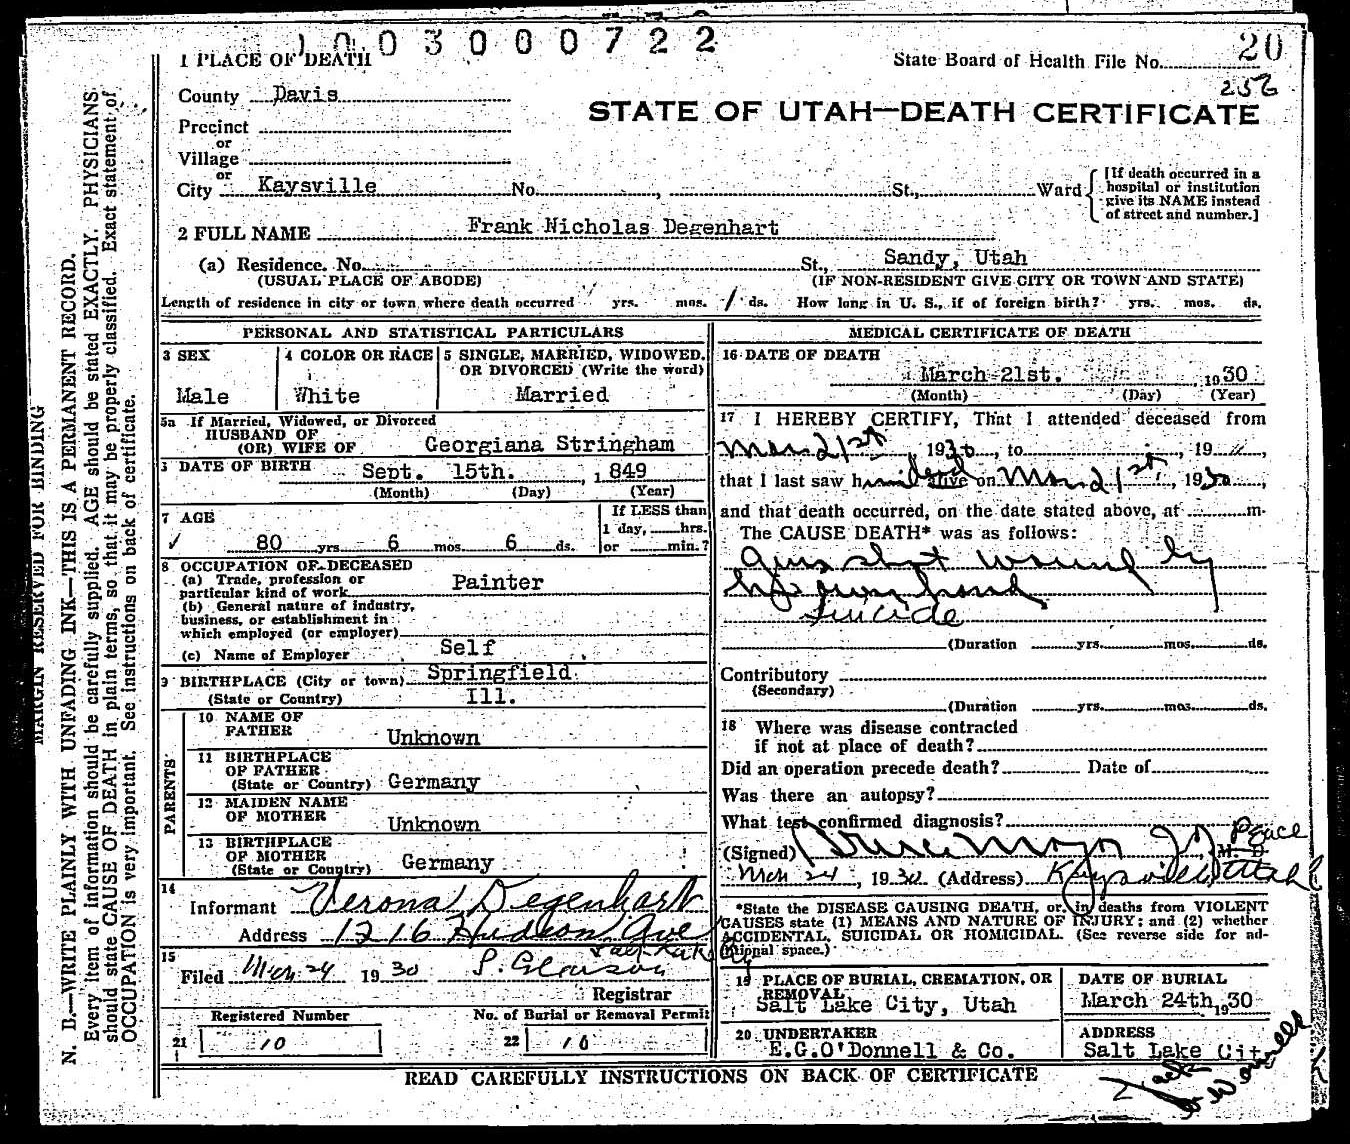 1003000722
1 PLACE OF DEATH
State Board of Health File No. 20
256
County Davis
STATE OF UTAH—DEATH CERTIFICATE
Precinct
or
Village
or
City Kaysville No. , St., Ward
[If death occurred in a
hospital or institution
give its NAME instead
of street and number.]
2 FULL NAME Frank Nicholas Degenhart
(a) Residence. No. St., Sandy, Utah
(USUAL PLACE OF ABODE) (IF NON-RESIDENT GIVE CITY OR TOWN AND STATE)
Length of residence in city or town where death occurred yrs. mos. 1 ds. How long in U. S., if of foreign birth? yrs. mos. ds.
PERSONAL AND STATISTICAL PARTICULARS
3 SEX
Male
4 COLOR OR RACE
White
5 SINGLE, MARRIED, WIDOWED,
OR DIVORCED (Write the word)
Married
5a If Married, Widowed, or Divorced
HUSBAND OF
(OR) WIFE OF Georgiana Stringham
DATE OF BIRTH Sept. 15th. , 1849
(Month) (Day) (Year)
7 AGE
80 yrs 6 mos. 6 ds.
If LESS than
1 day, hrs.
or min.?
8 OCCUPATION OF DECEASED
(a) Trade, profession or
particular kind of work Painter
(b) General nature of industry,
business, or establishment in
which employed (or employer)
(c) Name of Employer Self
9 BIRTHPLACE (City or town) Springfield
(State or Country) Ill.
PARENTS
10 NAME OF
FATHER Unknown
11 BIRTHPLACE
OF FATHER
(State or Country) Germany
12 MAIDEN NAME
OF MOTHER Unknown
13 BIRTHPLACE
OF MOTHER
(State or Country) Germany
14
Informant Verona Degenhart
Address 1216 Hudson Ave
Salt Lake City
15
Filed Mch 24 1930
Registrar
Registered Number
21 10
No. of Burial or Removal Permit
22 10
MEDICAL CERTIFICATE OF DEATH
16 DATE OF DEATH
March 21st. , 1930
(Month) (Day) (Year)
17 I HEREBY CERTIFY, That I attended deceased from
Mch 21st, 1930, to , 19 ",
that I last saw him dead alive on Mch 21st, 1930,
and that death occurred, on the date stated above, at m.
The CAUSE DEATH* was as follows:
Gun shot wound by
his own hand
Suicide
(Duration yrs. mos. ds.
Contributory
(Secondary)
(Duration yrs. mos. ds.
18 Where was disease contracted
if not at place of death?
Did an operation precede death? Date of
Was there an autopsy?
What test confirmed diagnosis?
(Signed) M. D. Peace
Mch 24, 1930 (Address) Kaysville Utah
*State the DISEASE CAUSING DEATH, or, in deaths from VIOLENT
CAUSES state (1) MEANS AND NATURE OF INJURY; and (2) whether
ACCIDENTAL, SUICIDAL OR HOMICIDAL. (See reverse side for ad-
ditional space.)
19 PLACE OF BURIAL, CREMATION, OR
REMOVAL
Salt Lake City, Utah
DATE OF BURIAL
March 24th 1930
20 UNDERTAKER
E.G.O'Donnell & Co.
ADDRESS
Salt Lake Cit
READ CAREFULLY INSTRUCTIONS ON BACK OF CERTIFICATE
MARGIN RESERVED FOR BINDING
N. B.—WRITE PLAINLY WITH UNFADING INK—THIS IS A PERMANENT RECORD.
Every item of information should be carefully supplied. AGE should be stated EXACTLY. PHYSICIANS
should state CAUSE OF DEATH in plain terms, so that it may be properly classified. Exact statement of
OCCUPATION is very important. See instructions on back of certificate.